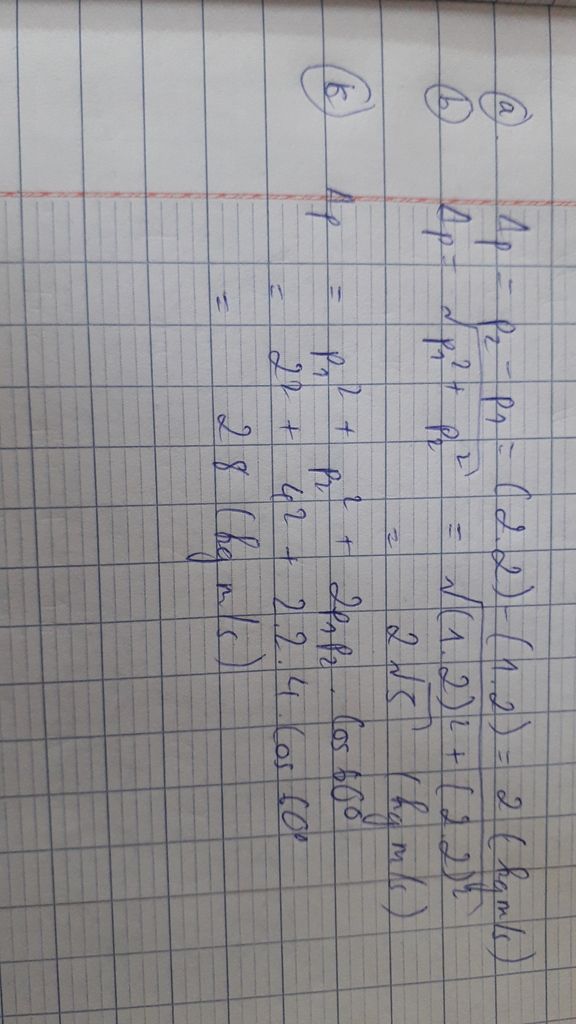 a) Δp = p₂ - p₁ = (2.2) - (1.2) = 2 (kg m/s)
b) Δp = √(p₁² + p₂²) = √((1.2)² + (2.2)²)
= 2√5 (kg m/s)
Δp = p₁² + p₂² + 2p₁p₂ . cos 60°
= 2² + 4² + 2.2.4. cos 60°
= 28 (kg m/s)